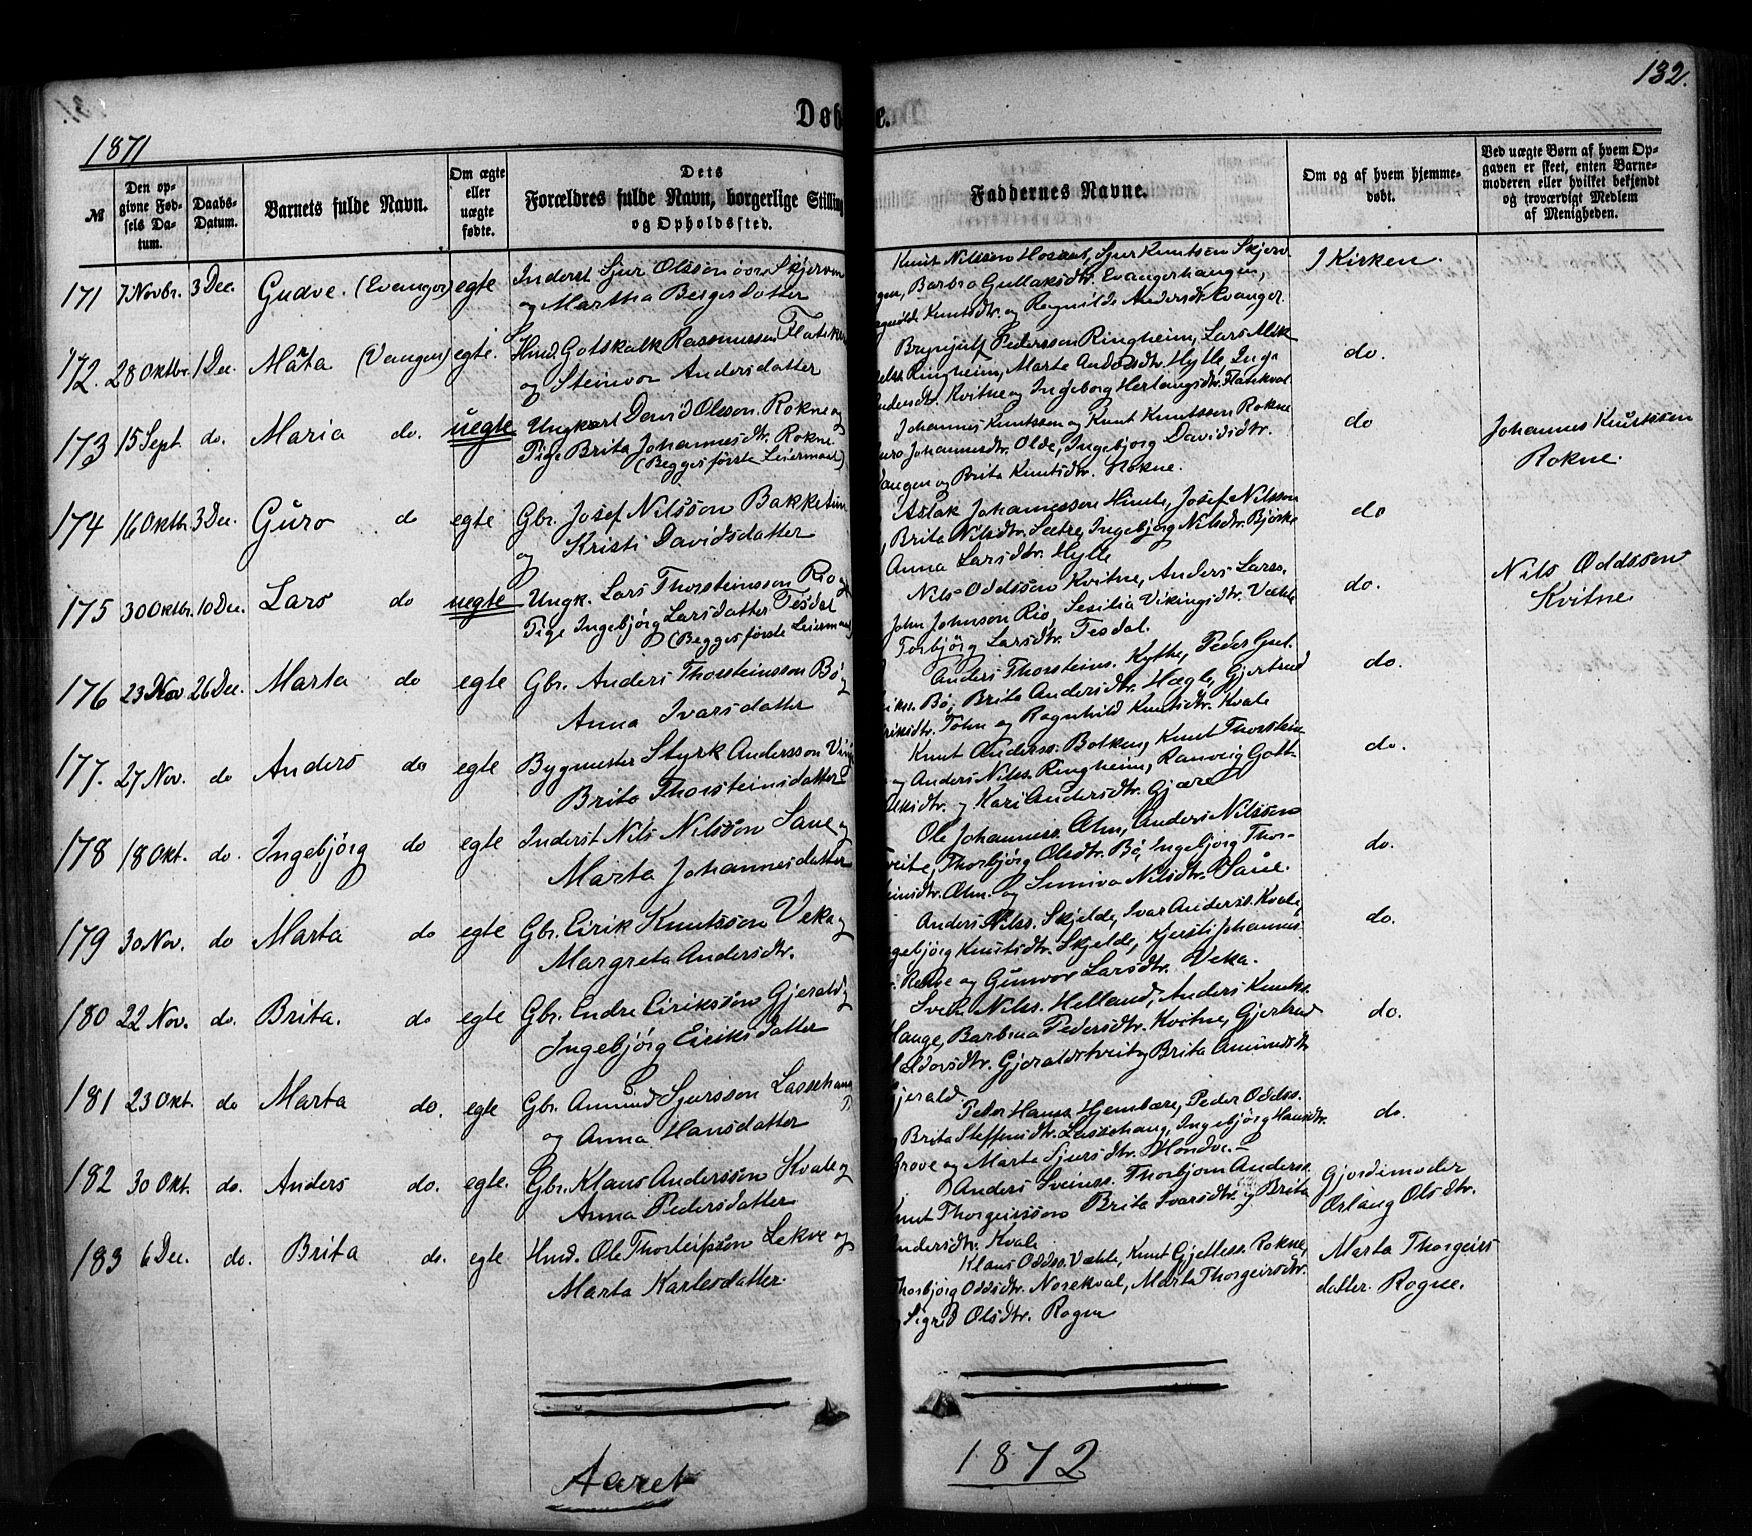 132.
Døbte.
1871
№
Den opgivne Fødsels Datum.
Daabs-Datum.
Barnets fulde Navn.
Om ægte eller uægte fødte.
Dets Forældres fulde Navn, borgerlige Stilling og Opholdssted.
Faddernes Navne.
Om og af hvem hjemmedøbt.
Ved uægte Børn af hvem Opgaven er skeet, enten Barnemoderen eller hvilket bekjendt og troværdigt Medlem af Menigheden.
171 7 Novbr. 3 Dec. Gudve. (Evanger) egte Inderst Sjur Olsson Skjerven
og Martha Bergesdatter
Knut Nilsson Sjur Knutsson Skjerv
Barbra Gullaksdtr. Evangerhaugen,
Knutsdtr. og Ragnilde Andersdtr. Evanger.
I Kirken.
172. 28 Oktbr. 1 Dec. Marta (Vangen) egte. Hmd. Gotskalk Rasmussen
og Steinvor Andersdatter
Brynjulf Pedersson Ringheim, Lars
Ringheim, Marta Andersdtr. Hylle, Inga
Andersdtr. Kvitne og Ingeborg Herlaugsdtr. Flatekval
do.
173 15 Sept. do. Maria do. uegte Ungkarl David Olsson Rokne og
Pige Brita Johannesdtr. Rokne.
(Begges første Leiermaal)
Johannes Knutsson og Knut Knutsson Rokne
Johannesdtr. Olde, Ingebjørg Davidsdtr.
Vangen og Brita Knutsdtr. Rokne.
do
Johannes Knutsson
Rokne.
174 16 Oktbr. 3 Dec. Guro do egte Gbr. Josef Nilsson Bakketun
og Kristi Davidsdatter
Aslak Johannesson Himle, Josef Nilsson
Brita Nilsdtr. Sætre, Ingebjørg Nilsdtr. Bjørke
Anna Larsdtr. Hylle
do
175 30 Oktbr. 10 Dec. Lars do uegte Ungk. Lars Thorsteinsson Rio og
Pige Ingebjørg Larsdatter Tesdal
(Begges første Leiermaal)
Nils Oddsson Kvitne, Anders Larss.
John Johnson Rio, Sesilia Vikingsdtr. Væle
Torbjørg Larsdtr. Tesdal.
do.
Nils Oddsson
Kvitne
176 23 Nov 26 Dec. Marta do egte Gbr. Anders Thorsteinsson Bø og
Anna Ivarsdatter
Anders Thorsteins. Kytte, Peder
Bø, Brita Andersdtr. Hægle, Gjertrud
Eriksdtr. Töhn og Ragnhild Knutsdtr. Kvale
do.
177. 27 Nov. do Anders do egte Bygmester Styrk Andersson
Brita Thorsteinsdatter
Knut Anderss. Bolken, Knut Thorstein
og Anders Nilss. Ringheim, Ranveig Gott-
og Kari Andersdtr. Gjære
do.
178 18 Okt. do. Ingebjörg do egte Inderst Nils Nilsson Saue og
Marta Johannesdatter
Ole Johanness. Ähn, Anders Nilsson
Thorbjørg Olsdtr. Bø, Ingebjørg Thor-
Ähn. og Sunniva Nilsdtr. Saue.
do.
179 30 Nov. do Marta do egte Gbr. Eirik Knutsson Veka og
Margreta Andersdtr.
Anders Nilss. Skjelde, Ivar Anderss. Kvale,
Ingebjörg Knutsdtr. Skjelde, Kjersti Johannes
og Gunvor Larsdtr. Veka.
do.
180 22 Nov. do. Brita. do egte Gbr. Endre Eiriksson Gjerald og
Ingebjörg Eiriksdatter
Nilss. Helland, Anders Knutss.
Hauge, Barbraa Pedersdtr. Kvitne, Gjertrud
Haldorsdtr. Gjeraldstveit og Brita Amundsdtr
Gjerald
do.
181 23 Okt. do Marta do. egte Gbr. Amund Sjursson Lassehaug
og Anna Hansdatter
Peder Hanss. Hjembære, Peder Oddss.
Brita Steffensdtr. Lassehaug, Ingebjörg Hansdtr.
Grove og Marta Sjursdtr. Mondve.
do.
182 30 Okt. do. Anders do. egte. Gbr. Klaus Andersson Kvale og
Anna Pedersdatter
Anders Sveinss. Thorbjørn Anderss.
Knut Thorgeirsson Brita Ivarsdtr. og Brita
Andersdtr. Kvale
Gjordemoder
Oslaug Olsdtr.
183 6 Dec. do. Brita do. egte Hmd. Ole Thorleifsson Lekve og
Marta Karlesdatter.
Klaus Oddss. Væle, Knut Gjetless. Rokne,
Thorbjörg Oddsdtr. Norekval, Marta Thorgeirsdtr.
Sigrid Olsdtr. Rogne
Marta Thorgeirs
datter Rogne.
Aaret
1872